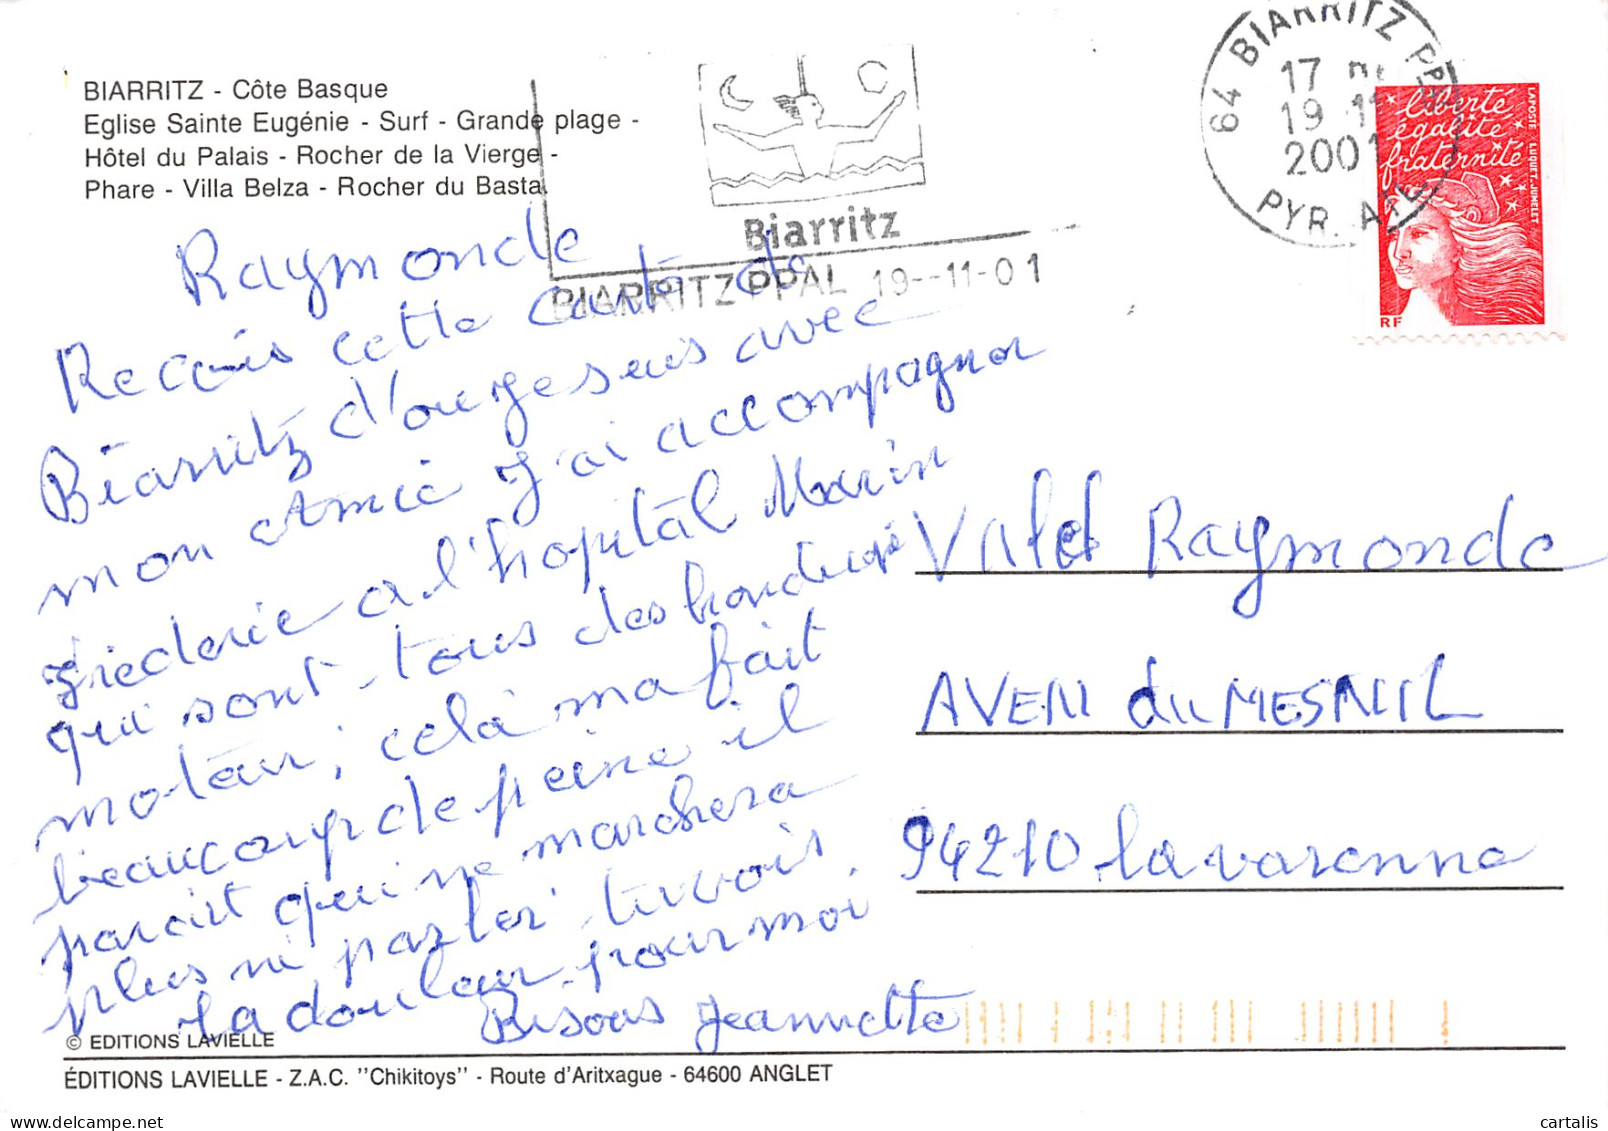 BIARRITZ - Côte Basque
Eglise Sainte Eugénie - Surf - Grande plage -
Hôtel du Palais - Rocher de la Vierge -
Phare - Villa Belza - Rocher du Basta.
Biarritz
BIARRITZ PPAL 19--11-01
64 BIARRITZ PPAL
17
19 11
2001
PYR. ATL
liberté
égalité
fraternité
LAPOSTE LUQUET-JUMELET
RF
Raymonde
Recois cette carte de
Biarritz d'ou je suis avec
mon Amie J'ai accompagner
frederic a l'hopital Marin
qui sont tous des handicapé
moteur, celà ma fait
beaucoup de peine il
parait qui ne marchera
plus ni parler tu vois
la douleur pour moi
Bisous Jeannette
Valet Raymonde
AVENU du MESNIL
94210 la varenne
© EDITIONS LAVIELLE
ÉDITIONS LAVIELLE - Z.A.C. "Chikitoys" - Route d'Aritxague - 64600 ANGLET
cartalis
delcampe.net